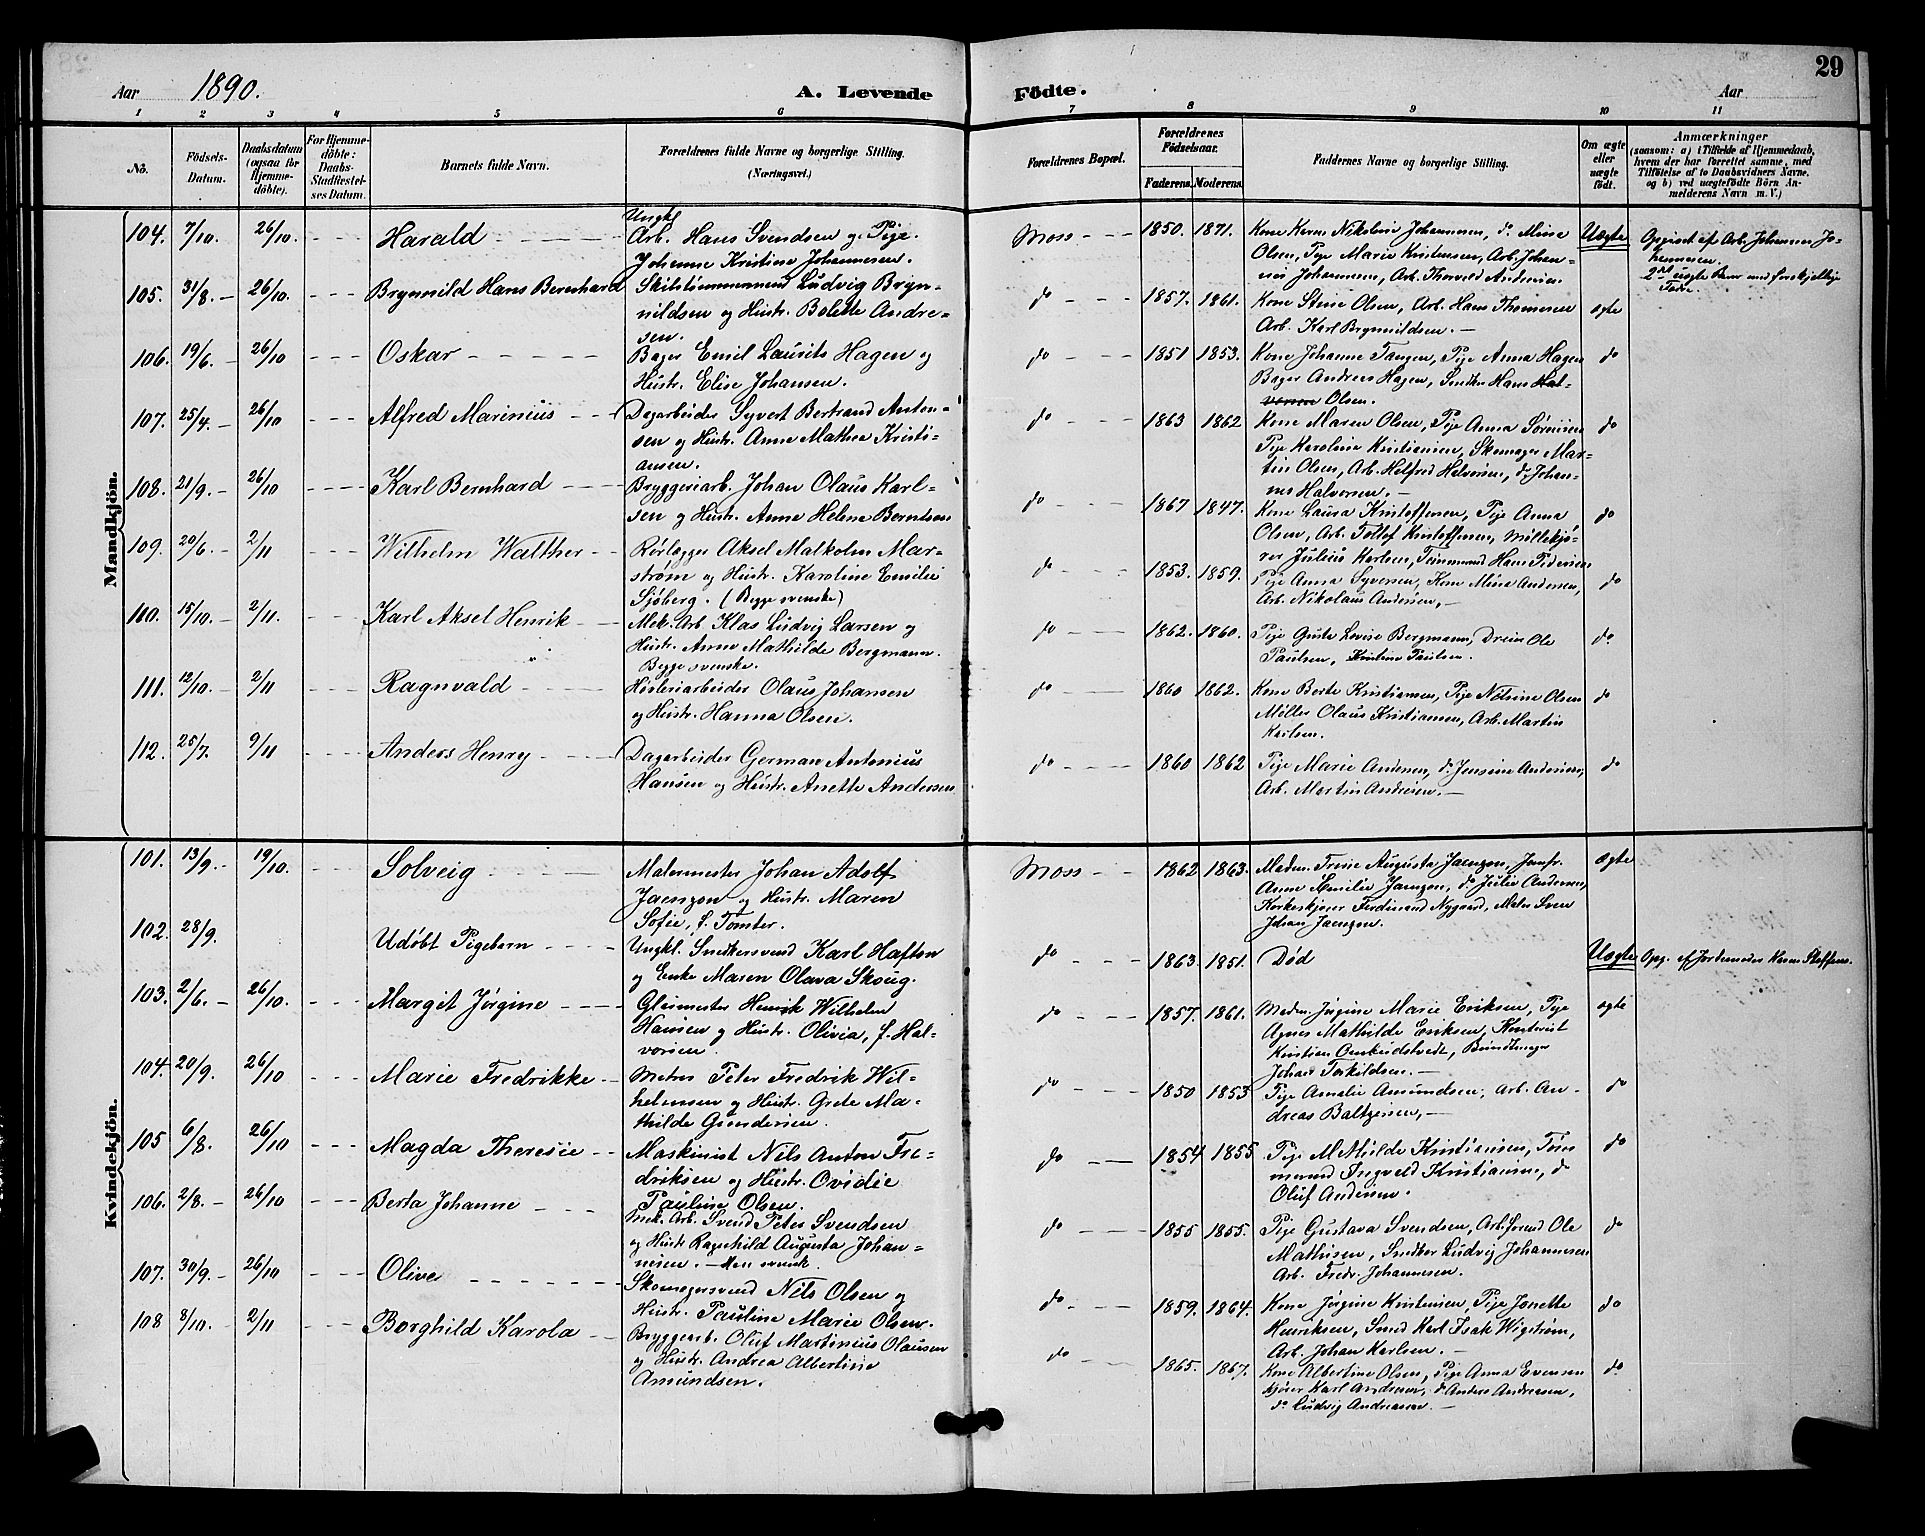 Aar 1890. A. Levende Födte. Aar 29
1 2 3 4 5 6 7 8 9 10 11
No.
Födsels-Datum.
Daabsdatum (ogsaa for Hjemmedöbte).
For Hjemmedöbte: Daabs-Stadfæstelses Datum.
Barnets fulde Navn.
Forældrenes fulde Navne og borgerlige Stilling. (Næringsvei.)
Forældrenes Bopæl.
Forældrenes Födselsaar.
Faderens. Moderens.
Faddernes Navne og borgerlige Stilling.
Om ægte eller uægte födt.
Anmærkninger
(saasom: a) i Tilfælde af Hjemmedaab, hvem der har forrettet samme, med Tilföielse af to Daabsvidners Navne, og b) ved uægtefödte Börn Anmelderens Navn m. V.)
Mandkjön.
104. 7/10. 26/10. Harald
Ungkl
Arb. Hans Svendsen og Pige
Johanne Kristine Johannesen.
Moss 1850. 1871.
Kone Karen Nikoline Johannesen, do Mina
Olsen, Pige Marie Kristensen, Arb. Johan-
nes Johannesen, Arb. Thorvald Andersen.
Uægte
Opgivet af Arb. Johannes Jo-
hannesen.
2det uægte Barn med forskjellige
Fædre.
105. 31/8. 26/10. Brynnild Hans Bernhard
Skibstimmermand Ludvig Bryn-
nildsen og Hustr. Bolette Andre-
sen.
do 1857. 1861.
Kone Stine Olsen, Arb. Hans Thomesen
Arb. Karl Brynnildsen.
ægte
106. 19/6. 26/10 Oskar
Bager Emil Laurits Hagen og
Hustr. Elise Johansen.
do 1851 1853.
Kone Johanne Tangen, Pige Anna Hagen
Bager Andreas Hagen, Snedker Hans Hal-
versen Olsen.
do
107. 25/4. 26/10 Alfred Marinius
Dagarbeider Syvert Bertrand Anton-
sen og Hustr. Anne Mathea Kristi-
ansen.
do 1863 1862
Kone Maren Olsen, Pige Anna Sørensen
Pige Karoline Kristiansen, Skomager Mar-
tin Olsen, Arb. Halfred Halvorsen, do Johan-
nes Halvorsen.
do
108. 21/9. 26/10 Karl Bernhard
Bryggeriarb. Johan Olaus Karl-
sen og Hustr. Anne Helene Berntsen
do 1867 1847.
Kone Laura Kristoffersen, Pige Anna
Olsen, Arb. Tollef Kristoffersen, Møllekjø-
rer Julius Karlsen, Tømmermand Hans Pedersen
do
109. 20/6. 2/11 Wilhelm Walther
Rørlægger Aksel Malkolm Mar-
strøm og Hustr. Karoline Emilie
Sjøberg. (Begge svenske)
do 1853. 1859.
Pige Anna Syversen, Kone Mina Andersen,
Arb. Nikolaus Andersen,
do
110. 15/10. 2/11. Karl Aksel Henrik
Mek. Arb Klas Ludvig Larsen og
Hustr. Anna Mathilde Bergmann.
Begge svenske.
do 1862. 1860.
Pige Gusta Lovise Bergmann, Dreier Ole
Paulsen, Kristine Paulsen.
do
111. 12/10. 2/11 Ragnvald
Høvleriarbeider Olaus Johansen
og Hustr. Hanna Olsen.
do 1860 1862.
Kone Berte Kristiansen, Pige Nilsine Olsen
Møller Olaus Kristiansen, Arb. Martin
Karlsen.
do
112. 25/7. 9/11 Anders Henry
Dagarbeider German Antonius
Hansen og Hustr. Anette Andersen
do 1860 1862
Pige Marie Andersen, do Jensine Andersen,
Arb. Martin Andresen.
do
Kvindekjön.
101. 13/9. 19/10. Solveig
Malermester Johan Adolf
Jaenzon og Hustr. Maren
Sofie, f. Tomter.
Moss 1862 1863.
Madm. Trine Augusta Jaenzon, Jomfr.
Anna Emilie Jaenzon, do Julie Andersen,
Korkeskjærer Ferdinand Nygaard, Maler Sven
Johan Jaenzon.
ægte
102. 28/9. Udøbt Pigebarn
Ungkl. Snedkersvend Karl Hafton
og Enke Maren Olava Skoug.
do 1863. 1851. Død
Uægte
Opg. af Jordemoder Karen Steffens.
103. 2/6. 26/10. Margit Jørgine
Glasmester Henrik Wilhelm
Hansen og Hustr. Olivia, f. Hal-
vorsen.
do 1857. 1861.
Madm. Jørgine Marie Eriksen, Pige
Agnes Mathilde Eriksen,
Kristian Bundtmager
Johan Torkildsen.
ægte
104. 20/9. 26/10 Marie Fredrikke
Matros Peter Fredrik Wil-
helmsen og Hustr. Grete Ma-
thilde Gundersen.
do 1850 1853
Pige Amalie Amundsen, Arb. An-
dreas Baltzersen,
do
105 6/8. 26/10 Magda Theresie
Maskinist Nils Anton Fre-
driksen og Hustr. Ovidie
Pauline Olsen.
do 1854 1855
Pige Mathilde Kristiansen, Tøm-
mermand Ingvald Kristiansen, do
Oluf Andersen.
do
106. 2/8. 26/10 Berta Johanne
Mek. Arb. Svend Peter Svendsen
og Hustr Ragnhild Augusta Johan-
nesen. - Man svensk.
do 1855 1855.
Pige Gustava Svendsen, Arb. Ole
Mathisen, Snedker Ludvig Johannesen
Arb. Fredr. Johannesen.
do
107. 30/9. 26/10 Olive
Skomagersvend Nils Olsen og
Hustr. Pauline Marie Olsen.
do 1859. 1864.
Kone Jørgine Kristensen, Pige Jonette
Henriksen, Smed Karl Isak Wigstrøm,
Arb. Johan Karlsen.
do
108 8/10. 2/11 Borghild Karola
Bryggeriarb. Oluf Martinius Olausen
og Hustr. Andrea Albertine
Amundsen.
do 1865. 1867.
Kone Albertine Olsen, Pige Anna Evensen
kjører Karl Andresen, do Anders Andreasen,
do Ludvig Andreasen.
do